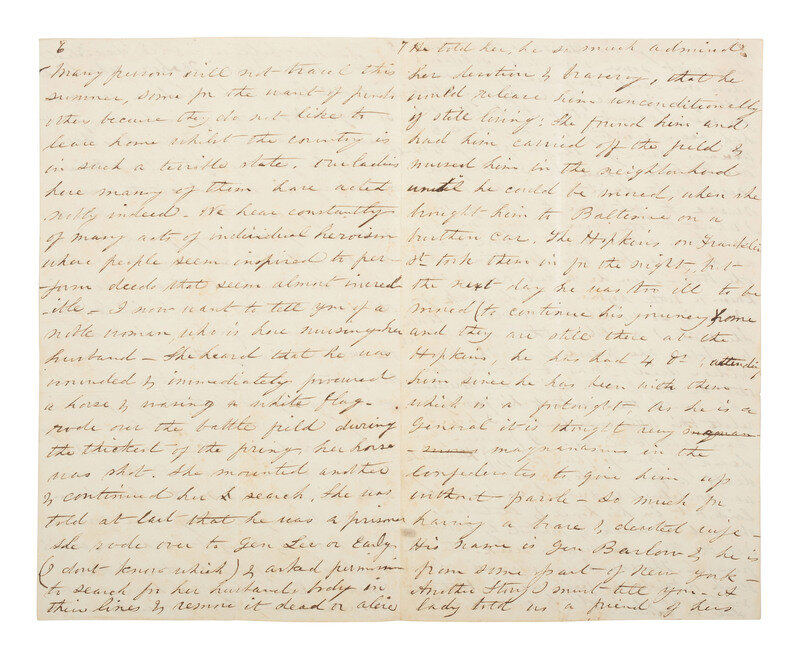 6
Many persons will not travel this
summer, some for the want of funds
others because they do not like to
leave home whilst the country is
in such a terrible state. Our ladies
here many of them have acted
nobly indeed - We hear constantly
of many acts of individual heroism
where people seem inspired to per-
-form deeds that seem almost incred
-ible - I now want to tell you of a
noble woman, who is here nursing her
husband - She heard that he was
wounded & immediately procured
a horse & waving a white flag -
rode over the battle field during
the thickest of the firing, her horse
was shot. She mounted another
& continued her search. She was
told at last that he was a prisoner
She rode over to Gen Lee or Early
(I dont know which) & asked permission
to search for her husbands body in
their lines & remove it dead or alive
7 He told her, he so much admired
her devotion & bravery, that he
would release him unconditionally
if still living: She found him and
had him carried off the field &
nursed him in the neighborhood
until he could be moved, when she
brought him to Baltimore on a
burthen car. The Hopkins on Franklin
St. took them in for the night, but
the next day he was too ill to be
moved (to continue his journey home
and they are still there at the
Hopkins he has had 4 Drs attending
him since he has been with them -
which is a fortnight. As he is a
General it is thought very
magnanimous in the
Confederates to give him up
without parole - So much for
having a brave & devoted wife -
His name is Gen Barlow & he is
from some part of New York -
Another Story I must tell you - A
lady told us a friend of hers